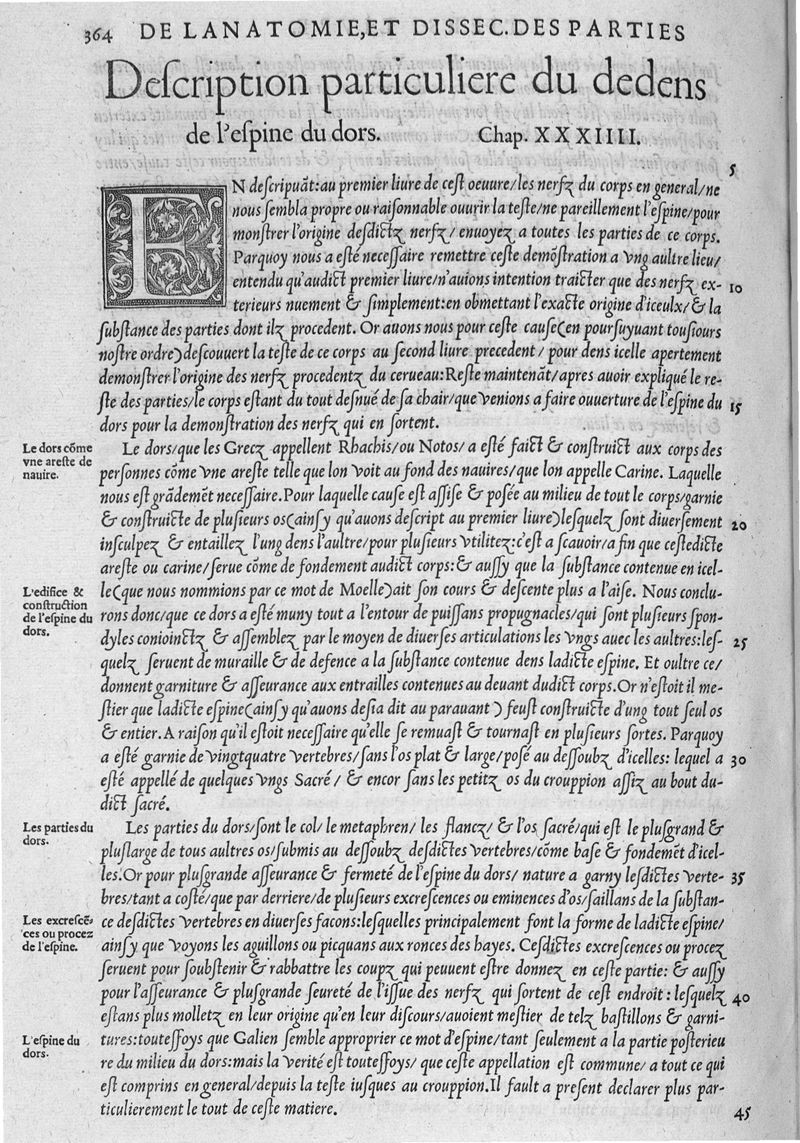 364 DE LANATOMIE, ET DISSEC. DES PARTIES
Deſcription particuliere du dedens
de l'eſpine du dors. Chap. XXXIIII.
5
EN deſcripuãt:au premier liure de ceſt oeuure/les nerfz du corps en general/ne
nous ſembla propre ou raiſonnable ouurir la teſte/ne pareillement l'eſpine/pour
monſtrer l'origine deſdictz nerfz/ enuoyez a toutes les parties de ce corps.
Parquoy nous a eſté neceſſaire remettre ceſte demõſtration a vng aultre lieu/
entendu qu'audict premier liure/n'auions intention traicter que des nerfz ex- 10
terieurs nuement & ſimplement:en obmettant l'exacte origine d'iceulx/& la
ſubſtance des parties dont ilz procedent. Or auons nous pour ceſte cauſe(en pourſuyuant touſiours
noſtre ordre)deſcouuert la teſte de ce corps au ſecond liure precedent/ pour dens icelle apertement
demonſtrer l'origine des nerfz procedentz du cerueau:Reſte maintenãt/apres auoir expliqué le re-
ſte des parties/le corps eſtant du tout deſnué de ſa chair/que venions a faire ouuerture de l'eſpine du 15
dors pour la demonſtration des nerfz qui en ſortent.
Le dors cõme
vne areſte de
nauire.
Le dors/que les Grecz appellent Rhachis/ou Notos/ a eſté faict & conſtruict aux corps des
perſonnes cõme vne areſte telle que lon voit au fond des nauires/que lon appelle Carine. Laquelle
nous eſt grãdemẽt neceſſaire.Pour laquelle cauſe eſt aſſiſe & poſée au milieu de tout le corps/garnie
& conſtruicte de pluſieurs os(ainſy qu'auons deſcript au premier liure)leſquelz ſont diuerſement 20
inſculpez & entaillez l'ung dens l'aultre/pour pluſieurs vtilitez:c'eſt a ſcauoir/a fin que ceſtedicte
areſte ou carine/ſerue cõme de fondement audict corps:& auſſy que la ſubſtance contenue en icel-
L'edifice &
conſtruction
de l'eſpine du
dors.
le(que nous nommions par ce mot de Moelle)ait ſon cours & deſcente plus a l'aiſe. Nous conclu-
rons donc/que ce dors a eſté muny tout a l'entour de puiſſans propugnacles/qui ſont pluſieurs ſpon-
dyles conioinctz & aſſemblez par le moyen de diuerſes articulations les vngs auec les aultres:leſ- 25
quelz ſeruent de muraille & de defence a la ſubſtance contenue dens ladicte eſpine. Et oultre ce/
donnent garniture & aſſeurance aux entrailles contenues au deuant dudict corps.Or n'eſtoit il me-
ſtier que ladicte eſpine(ainſy qu'auons deſia dit au parauant) feuſt conſtruicte d'ung tout ſeul os
& entier.A raiſon qu'il eſtoit neceſſaire qu'elle ſe remuaſt & tournaſt en pluſieurs ſortes. Parquoy
a eſté garnie de vingtquatre vertebres/ſans l'os plat & large/poſé au deſſoubz d'icelles: lequel a 30
eſté appellé de quelques vngs Sacré / & encor ſans les petitz os du crouppion aſſiz au bout du-
dict ſacré.
Les parties du
dors.
Les parties du dors/ſont le col/ le metaphren/ les flancz/ & l'os ſacré/qui eſt le pluſgrand &
pluſlarge de tous aultres os/ſubmis au deſſoubz deſdictes vertebres/cõme baſe & fondemẽt d'icel-
les.Or pour pluſgrande aſſeurance & fermeté de l'eſpine du dors/ nature a garny leſdictes verte- 35
bres/tant a coſté/que par derriere/de pluſieurs excreſcences ou eminences d'os/ſaillans de la ſubſtan-
Les excreſcẽ-
ces ou procez
de l'eſpine.
ce deſdictes vertebres en diuerſes facons:leſquelles principalement font la forme de ladicte eſpine/
ainſy que voyons les aguillons ou picquans aux ronces des hayes. Ceſdictes excreſcences ou procez
ſeruent pour ſoubſtenir & rabbattre les coupz qui peuuent eſtre donnez en ceſte partie: & auſſy
pour l'aſſeurance & pluſgrande ſeureté de l'iſſue des nerfz qui ſortent de ceſt endroit : leſquelz 40
eſtans plus molletz en leur origine qu'en leur diſcours/auoient meſtier de telz baſtillons & garni-
L'eſpine du
dors.
tures:touteſſoys que Galien ſemble approprier ce mot d'eſpine/tant ſeulement a la partie poſterieu
re du milieu du dors:mais la verité eſt touteſſoys/ que ceſte appellation eſt commune/ a tout ce qui
eſt comprins en general/depuis la teſte iuſques au crouppion.Il fault a preſent declarer plus par-
ticulierement le tout de ceſte matiere. 45